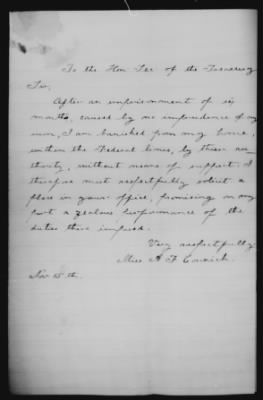 To the Hon Sec of the Treasury
Sir,
After an imprisonment of six
months, caused by no imprudence of my
own, I am banished from my home,
within the Federal lines, by their au-
thority, without means of support. I
therefore most respectfully solicit a
place in your office, promising on my
part a zealous performance of the
duties there imposed.
Very respectfully
Miss A F
Nov 15th